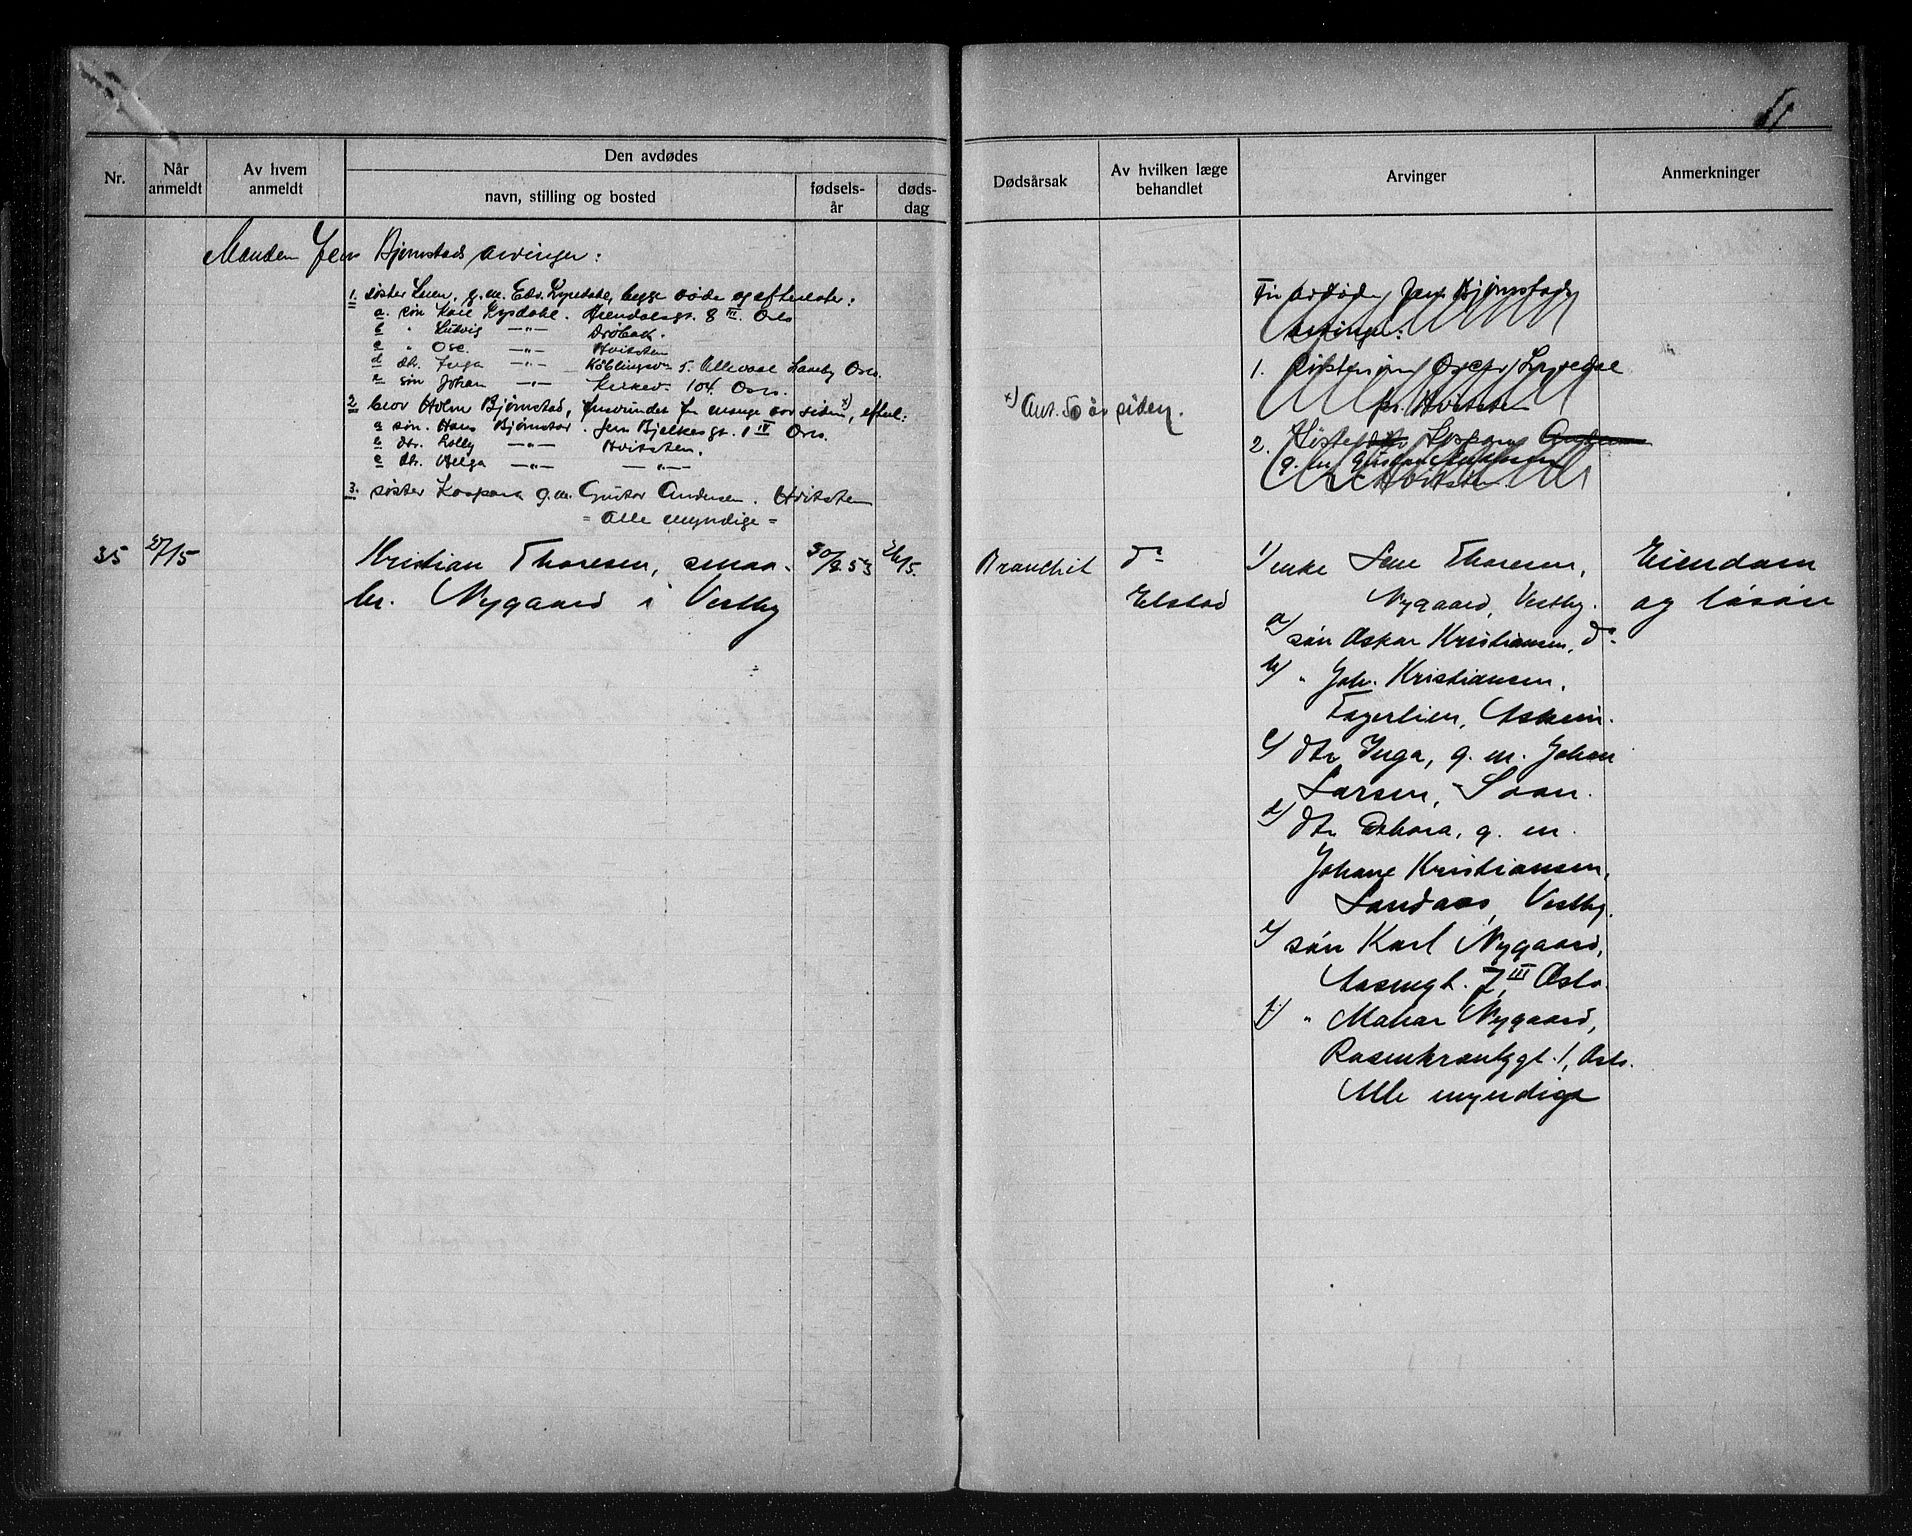 51
Nr.
Når anmeldt
Av hvem anmeldt
Den avdødes
navn, stilling og bosted
fødsels-år
døds-dag
Dødsårsak
Av hvilken læge behandlet
Arvinger
Anmerkninger
Manden Jens Bjørnstads arvinger:
1. søster g.m. Edv. Lysedahl, begge døde og efterlater:
a. søn Kare Lysdahl. Arendalsgt. 8 III. Oslo
b " Ludvig —"— Drøbak.
c " Osc. —"— Hvitsten
d dtr. Inga —"— 5. Ullevaal Haveby Oslo.
e søn Johan —"— Kirkev. 104. Oslo.
2 bror Holm Bjørnstad, forsvundet for mange aar siden x), efterl:
a søn. Hans Bjørnstad. Jens Bjelkesgt. 1 IV Oslo.
b dtr. Lolly —"— Hvitsten.
c dtr. Helga —"— —"—
3. søster Kaspara g.m. Gustav Andersen. Hvitsten
= Alle myndige =
x) Ant. 50 år siden.
Fir avdøde Jens Bjørnstads
arvinger:
1. Søstersøn Oscar Lysedal
pr. Hvitsten
2. Søster Kaspara
g. m. Gustav Andersen
Hvitsten.
35
27/5
Kristian Thoresen, smaa-
br. Nygaard i Vestby
30/8 53
26/5.
Bronchit
dr.
Elstad
1) enke Lene Thoresen,
Nygaard, Vestby.
a) søn Oskar Kristiansen, do.
b) " Joh. Kristiansen,
Fagerlien, Askim.
c) dtr Inga, g. m. Johan
Larsen, Soon.
d) dtr Debora, g. m.
Johane Kristiansen,
Sandaas, Vestby.
e) søn Karl Nygaard,
Aasengt. 7 III Oslo.
f) " Nygaard,
Rosenkrantzgt. 1, Oslo.
Alle myndige
Eiendom
og løsøre